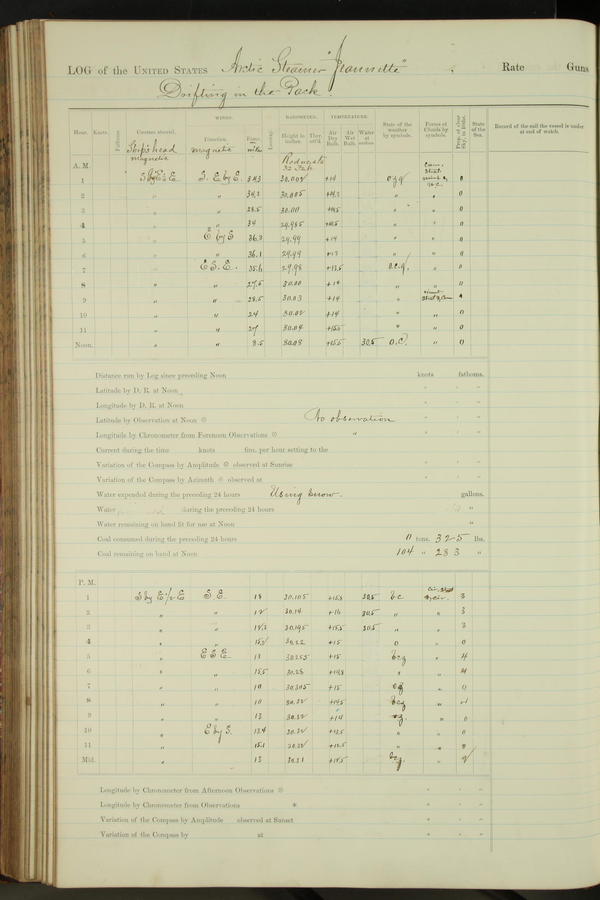 LOG of the UNITED STATES Arctic Steamer "Jeannette" Rate Guns
Drifting in the Pack.
WINDS. BAROMETER. TEMPERATURE.
Hour. Knots. Fathoms. Courses steered. Direction. Force. Leeway. Height in inches. Ther. att'd. Air Dry Bulb. Air Wet Bulb. Water at surface. State of the weather by symbols. Forms of Clouds by symbols. Prop. of clear Sky, in 10ths. State of the Sea. Record of the sail the vessel is under at end of watch.
Ship's head magnetic magnetic miles
A. M.
1 S. E by E. 30.002 +14 0
2 " " 30.005 " " 0
3 " " 28.5 30.00 " " 0
4 " " 34 29.985 " " 0
5 " E by S 36.2 29.99 +14 " " 0
6 " " 36.1 29.99 " " 0
7 " E S. E. 35.6 29.98 +13.5 o.c.q. " 0
8 " " 27.5 30.00 +14 " " 0
9 " " 28.5 30.03 +14 "
10 " " 24 30.02 +14 " " 0
11 " " 27 30.04 " " 0
Noon. " " 8.5 30.08 +15.5 30.5 O.C. " 0
Distance run by Log since preceding Noon knots fathoms.
Latitude by D. R. at Noon
Longitude by D. R. at Noon
Latitude by Observation at Noon No observation
Longitude by Chronometer from Forenoon Observations "
Current during the time knots fms. per hour setting to the
Variation of the Compass by Amplitude observed at Sunrise
Variation of the Compass by Azimuth observed at
Water expended during the preceding 24 hours Using snow. gallons.
Water during the preceding 24 hours "
Water remaining on hand fit for use at Noon "
Coal consumed during the preceding 24 hours 0 tons. 325 lbs.
Coal remaining on hand at Noon 104 " 283 "
P. M.
1 S by E 1/2 E S E. 18 30.105 +15.5 30.5 bc 3
2 " " 12 30.14 +16 30.5 " " 3
3 " " 30.195 +15.5 30.5 " " 3
4 " " 30.22 +15 0 " 0
5 " E S E 13 30.255 +15 bcq " 4
6 " " 15.5 30.28 " " 4
7 " " 10 30.305 +15 " 0
8 " " 10 30.32 +14.5 bcq "
9 " " 13 30.32 +14 " 0
10 " E by S. 13.4 30.32 +13.5 " " 0
11 " " 15.1 30.32 " "
Mid. " " 13 30.31 "
Longitude by Chronometer from Afternoon Observations
Longitude by Chronometer from Observations *
Variation of the Compass by Amplitude observed at Sunset
Variation of the Compass by at